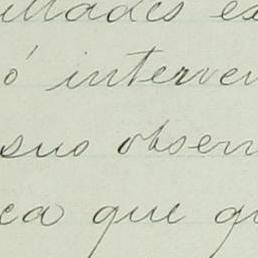 ultades ex
ó interven
sus observ
ca que qu